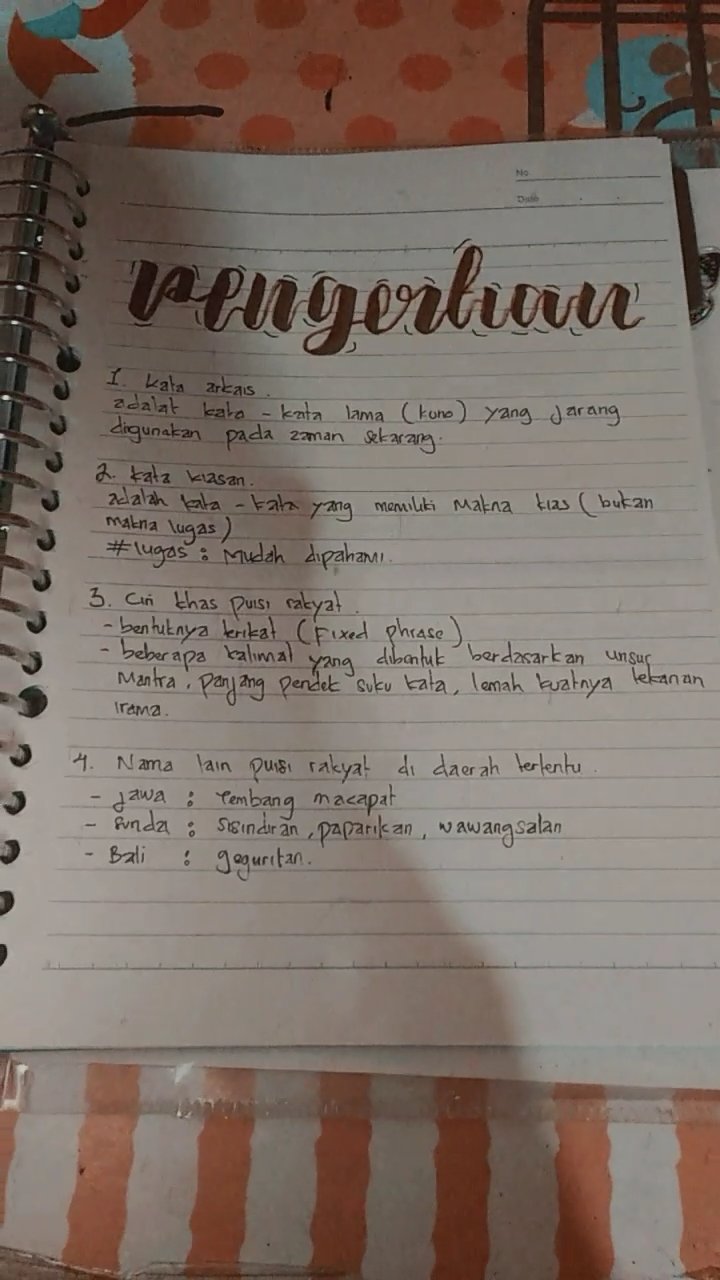 No
Date
Pengertian
1. Kata arkais.
adalat kata - kata lama (kuno) yang jarang
digunakan pada zaman sekarang.
2. Kata kiasan.
adalah kata - kata yang memiliki Makna kias (bukan
makna lugas)
# lugas : Mudah dipahami.
3. Ciri khas puisi rakyat.
- bentuknya terikat (Fixed phrase)
- beberapa kalimat yang dibentuk berdasarkan unsur
Mantra, panjang pendek suku kata, lemah kuatnya tekanan
irama.
4. Nama lain puisi rakyat di daerah tertentu.
- Jawa : Tembang macapat
- Sunda : Sisindiran, paparikan, wawangsalan
- Bali : geguritan.